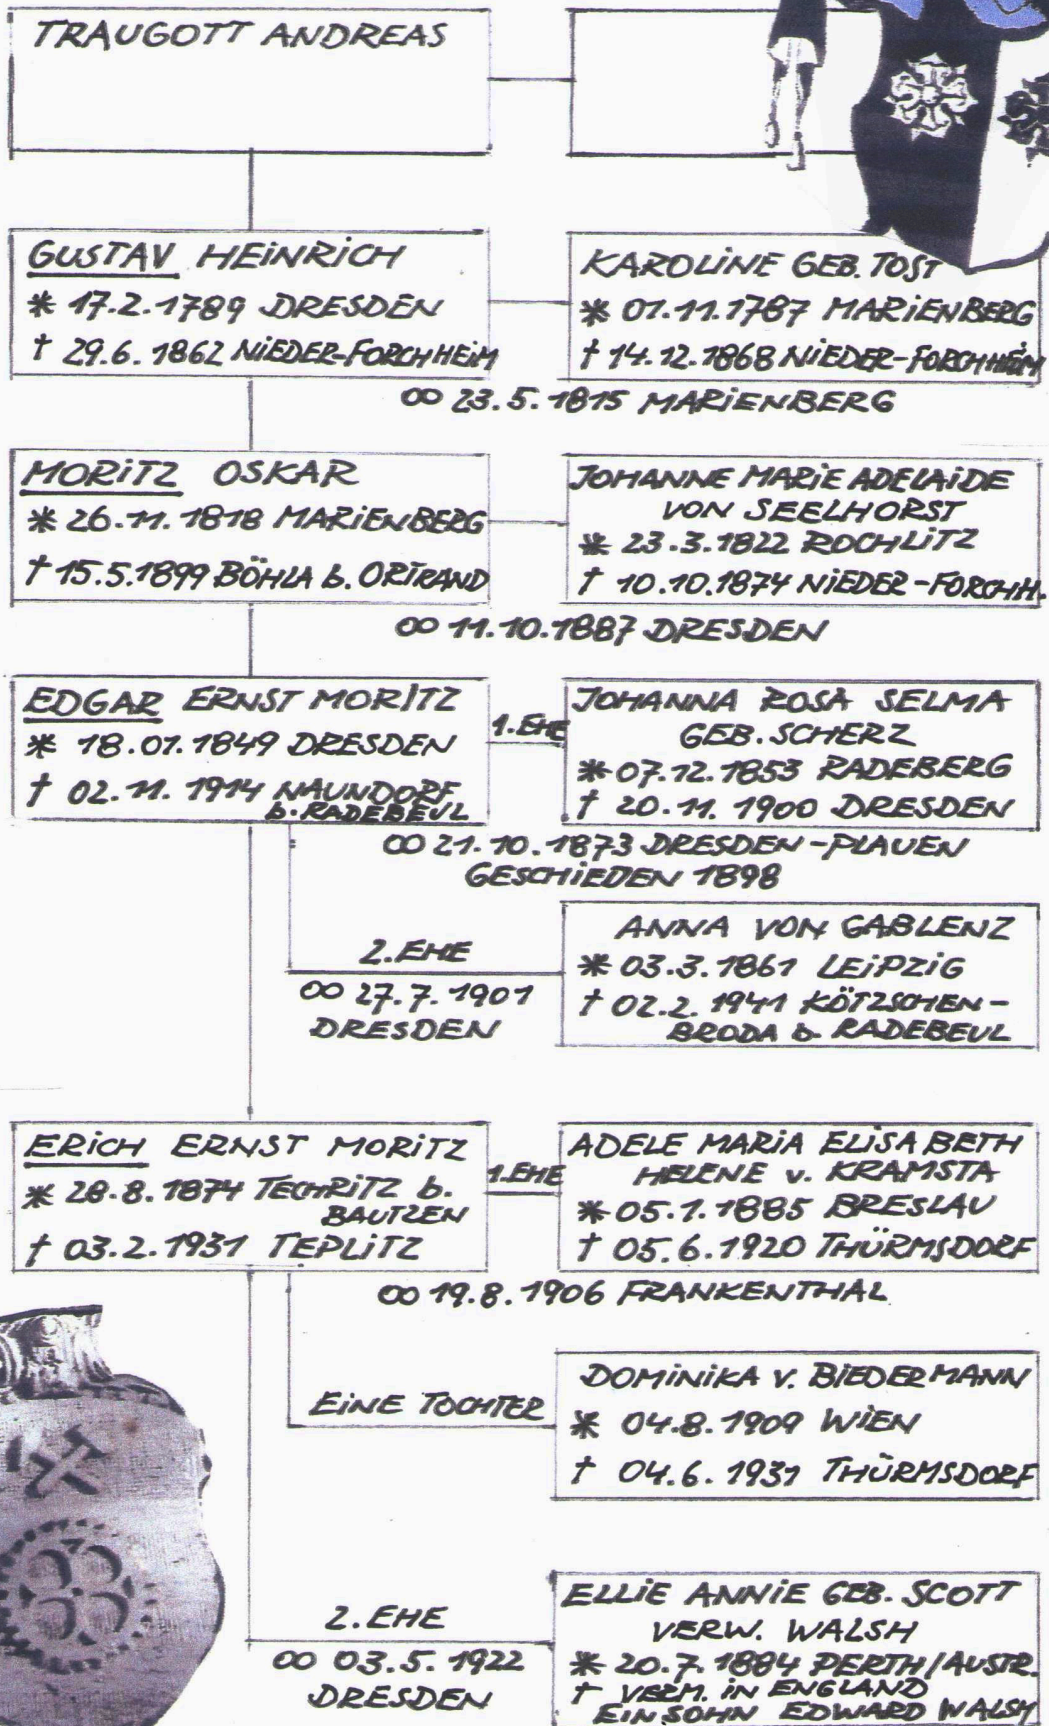 TRAUGOTT ANDREAS
GUSTAV HEINRICH
* 17.2.1789 DRESDEN
† 29.6.1862 NIEDER-FORCHHEIM
KAROLINE GEB. TOST
* 01.11.1787 MARIENBERG
† 14.12.1868 NIEDER-FORCHHEIM
∞ 23.5.1815 MARIENBERG
MORITZ OSKAR
* 26.11.1818 MARIENBERG
† 15.5.1899 BÖHLA b. ORTRAND
JOHANNE MARIE ADELAIDE
VON SEELHORST
* 23.3.1822 ROCHLITZ
† 10.10.1874 NIEDER-FORCHH.
∞ 11.10.1887 DRESDEN
EDGAR ERNST MORITZ
* 18.01.1849 DRESDEN
† 02.11.1914 NAUNDORF
b. RADEBEUL
1. EHE
JOHANNA ROSA SELMA
GEB. SCHERZ
* 07.12.1853 RADEBERG
† 20.11.1900 DRESDEN
∞ 21.10.1873 DRESDEN-PLAUEN
GESCHIEDEN 1898
2. EHE
∞ 27.7.1901
DRESDEN
ANNA VON GABLENZ
* 03.3.1861 LEIPZIG
† 02.2.1941 KÖTZSCHEN-
BRODA b. RADEBEUL
ERICH ERNST MORITZ
* 28.8.1874 TECHRITZ b.
BAUTZEN
† 03.2.1931 TEPLITZ
1. EHE
ADELE MARIA ELISABETH
HELENE v. KRAMSTA
* 05.1.1885 BRESLAU
† 05.6.1920 THÜRMSDORF
∞ 19.8.1906 FRANKENTHAL
EINE TOCHTER
DOMINIKA V. BIEDERMANN
* 04.8.1909 WIEN
† 04.6.1931 THÜRMSDORF
2. EHE
∞ 03.5.1922
DRESDEN
ELLIE ANNIE GEB. SCOTT
VERW. WALSH
* 20.7.1884 PERTH/AUSTR.
† VERM. IN ENGLAND
EIN SOHN EDWARD WALSH